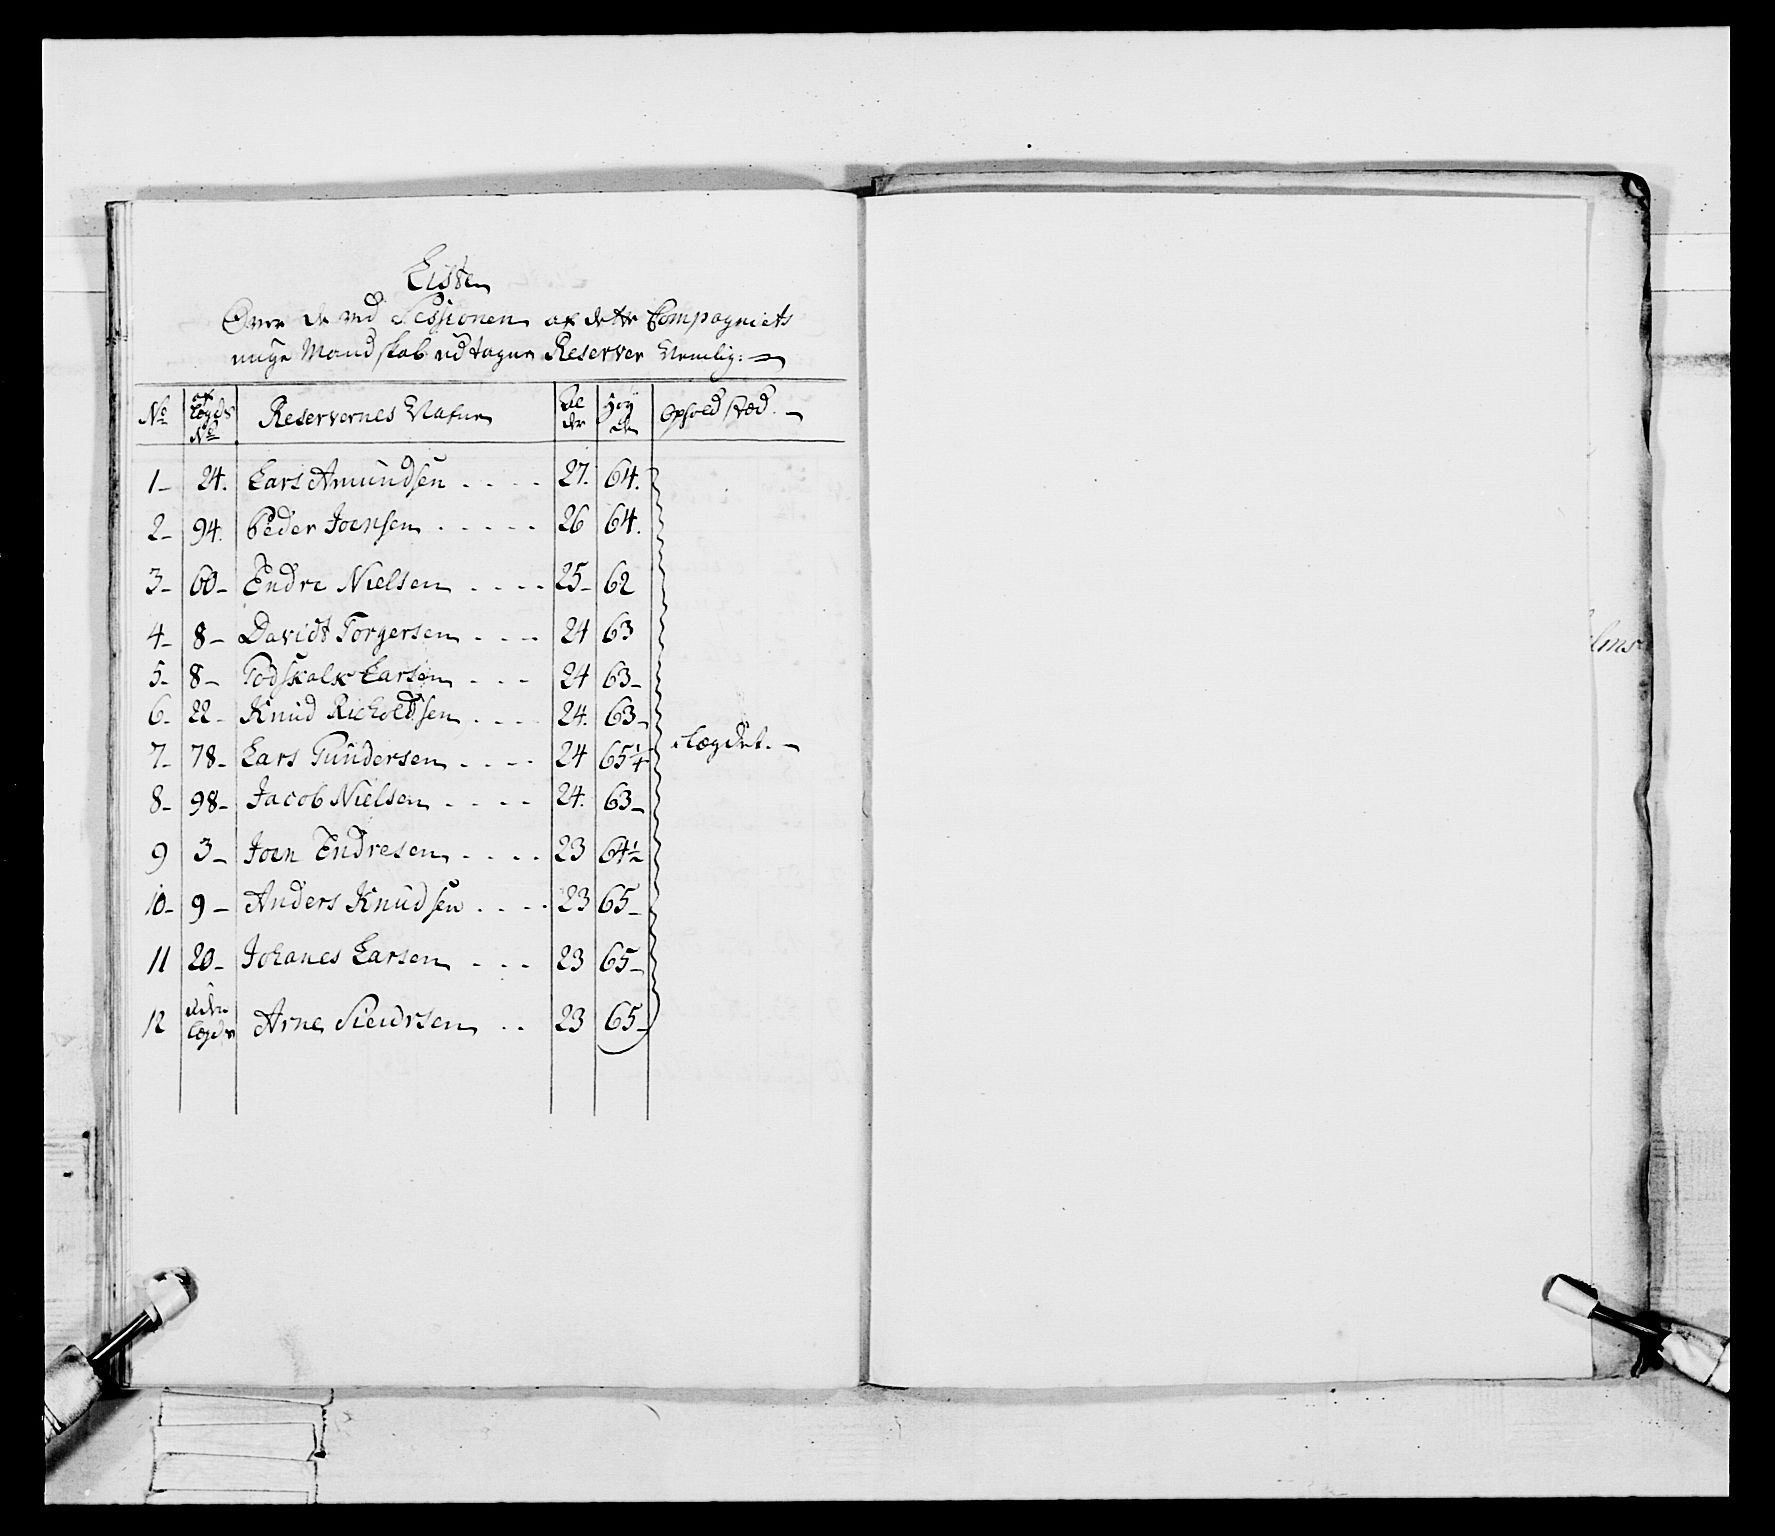 Listen
Over de ved Sessionen af dette Compagniets
unge Mandskab udtagne Reserver Nemlig:
No | af Lægds No | Reservernes Nafne | Alder | Høyde | Ophold stæd.
1 - | 24. | Lars Amundsen . . . . | 27. | 64.
2 - | 94. | Peder Joensen . . . . . | 26 | 64.
3 - | 60 - | Endre Nielsen . . . . | 25 - | 62
4 - | 8 - | Davidt Torgersen . . . | 24 | 63
5 - | 8 - | Godskalk Larsen . . . | 24 | 63 -
6 - | 22 - | Knud Richoldsen . . . . | 24. | 63 -
7 - | 78 - | Lars Gundersen . . . . | 24 | 65 1/4 | i Lægdet. -
8 - | 98 - | Jacob Nielsen . . . . | 24. | 63 -
9 | 3 - | Joen Endresen . . . . | 23 | 64 1/2
10 - | 9 - | Anders Knudsen . . . . | 23 | 65 -
11 | 20 - | Johanes Larsen . . . | 23 | 65 -
12 | uden Lægds | Arne | 23 | 65 -